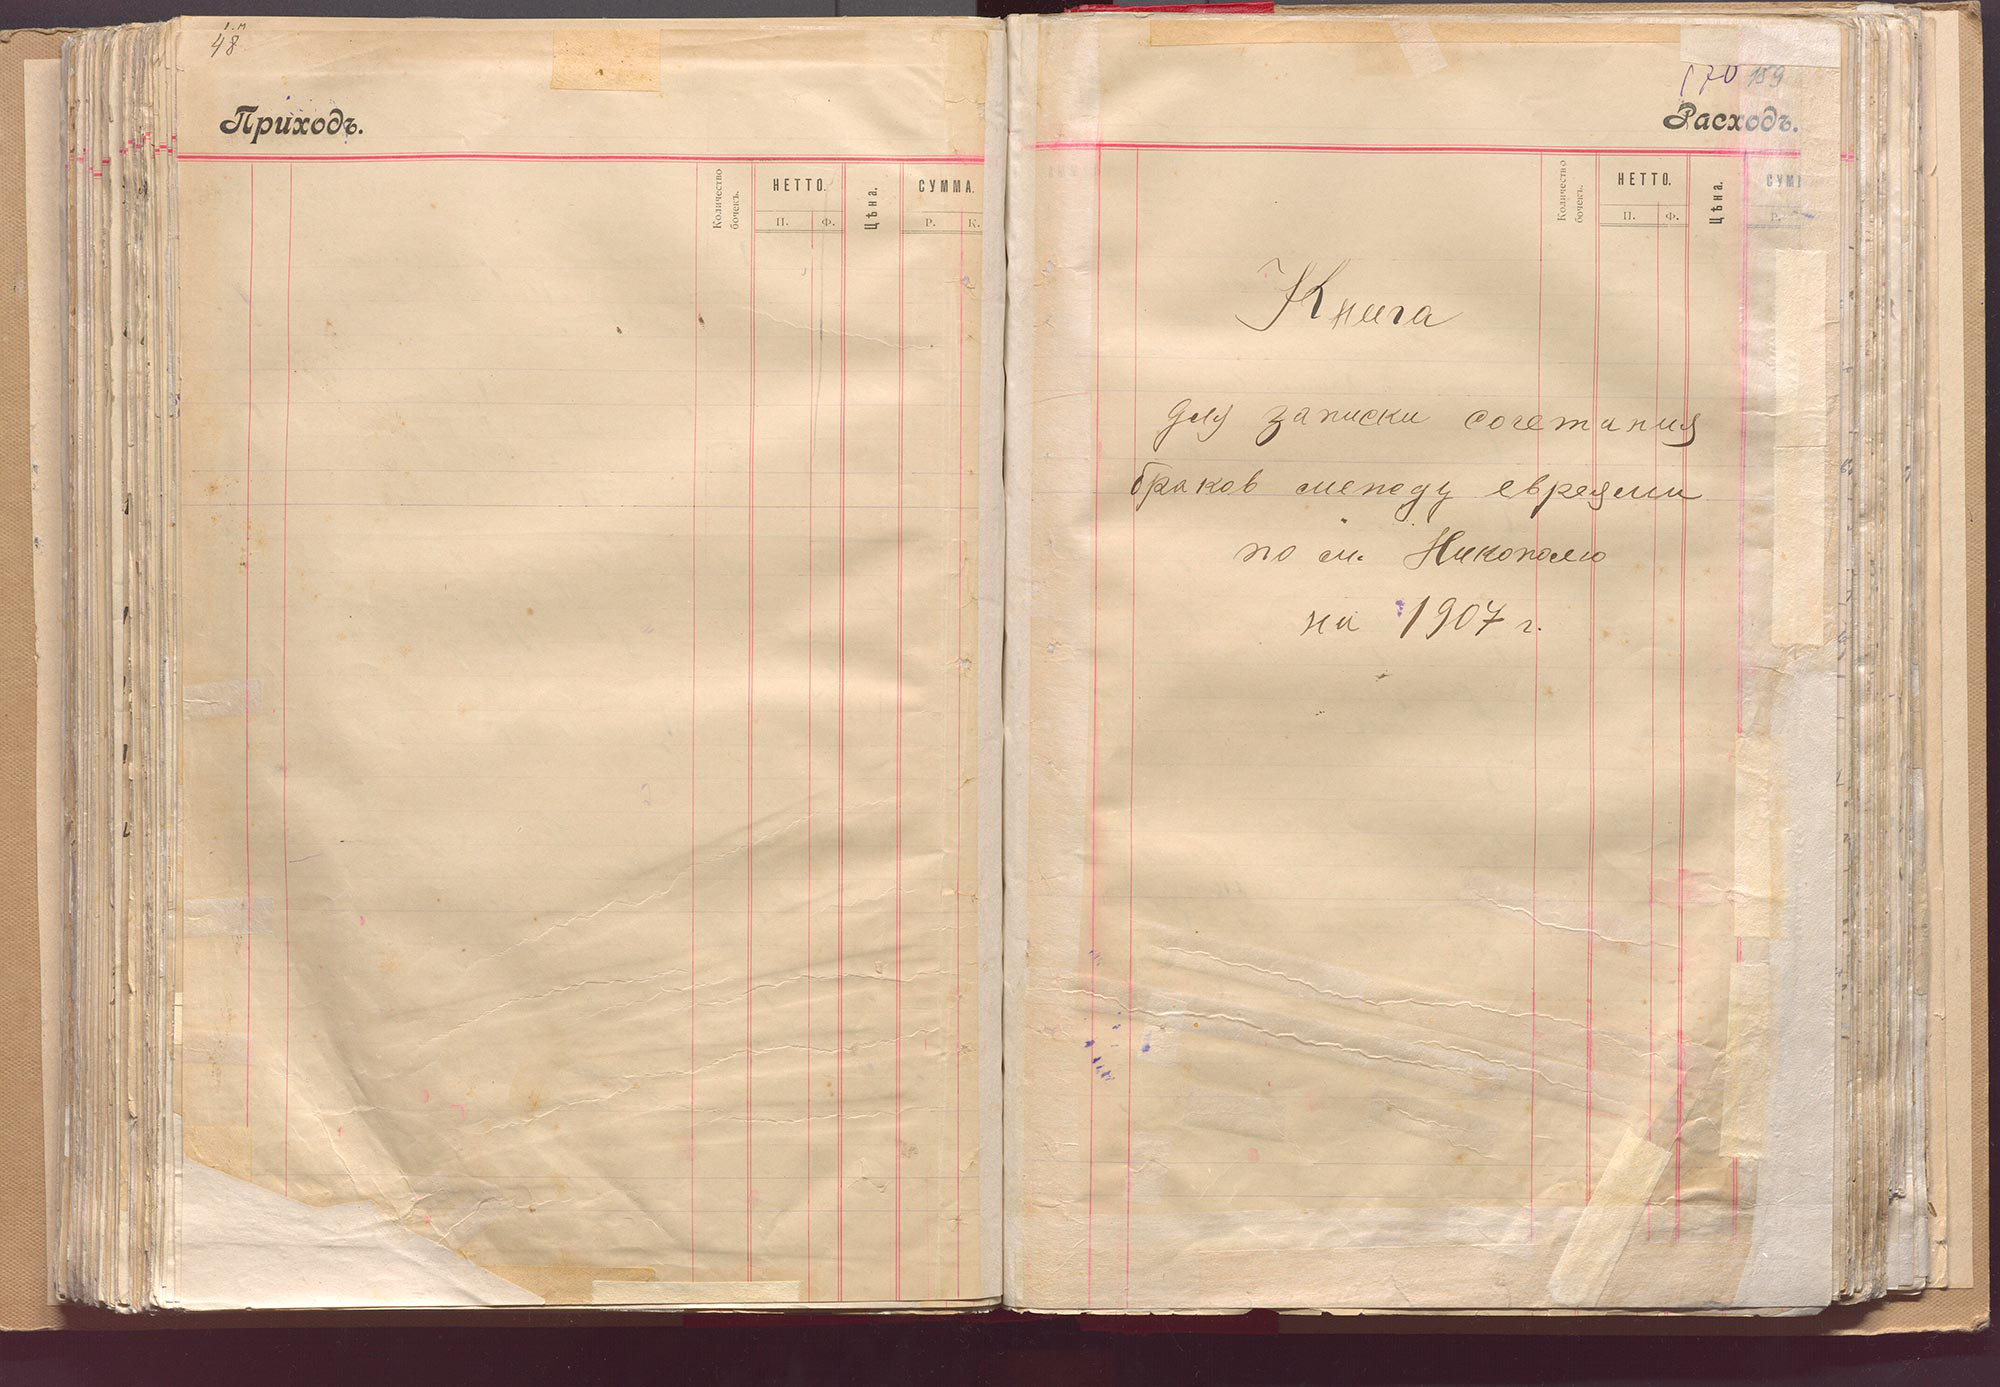 48
Приходъ.
Количество
бочекъ.
НЕТТО.
П. Ф.
Цѣна.
СУММА.
Р. К.
170 159
Расходъ.
Количество
бочекъ.
НЕТТО.
П. Ф.
Цѣна.
СУММ
Р.
Книга
для записки сочетания
браков между евреями
по м. Никополю
на 1907 г.